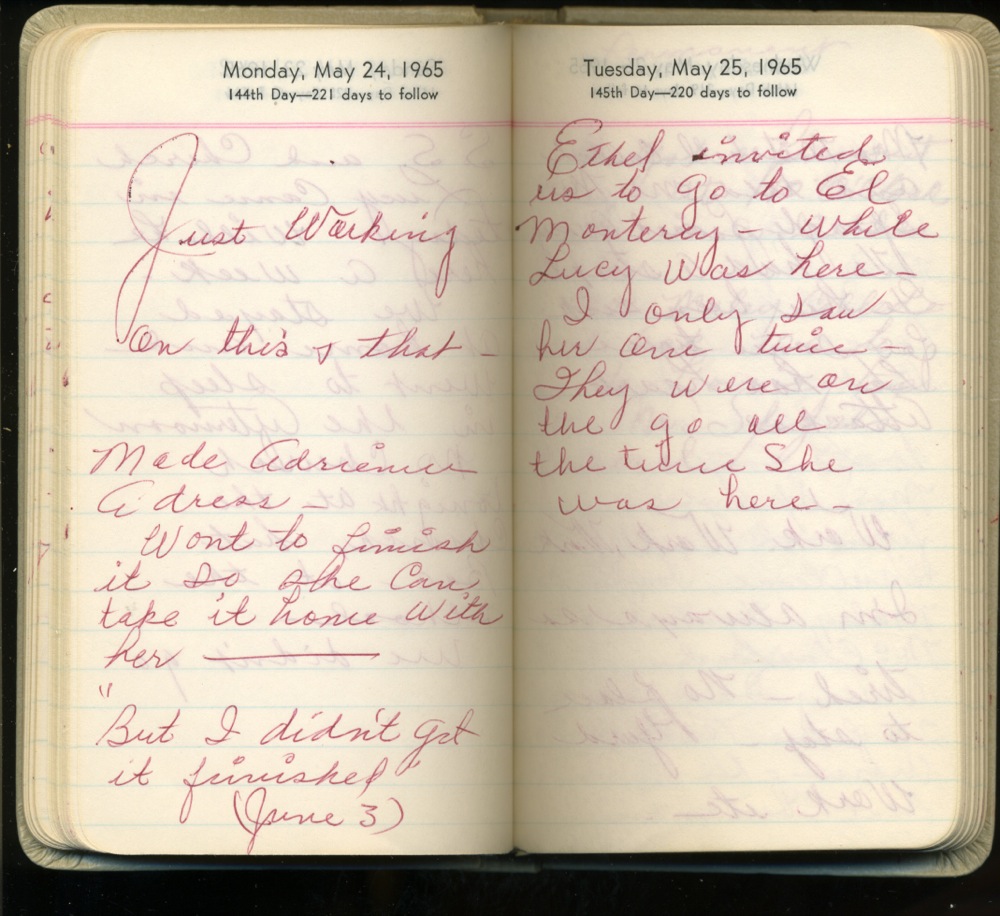 Monday, May 24, 1965
144th Day—221 days to follow
Just Working
on this & that –
Made Adrienne
a dress –
Want to finish
it so she can
take it home with
her ———
"
But I didn't get
it finished"
(June 3)
Tuesday, May 25, 1965
145th Day—220 days to follow
Ethel invited
us to go to El
Monterey – while
Lucy was here –
I only saw
her one time –
They were on
the go all
the time She
was here –